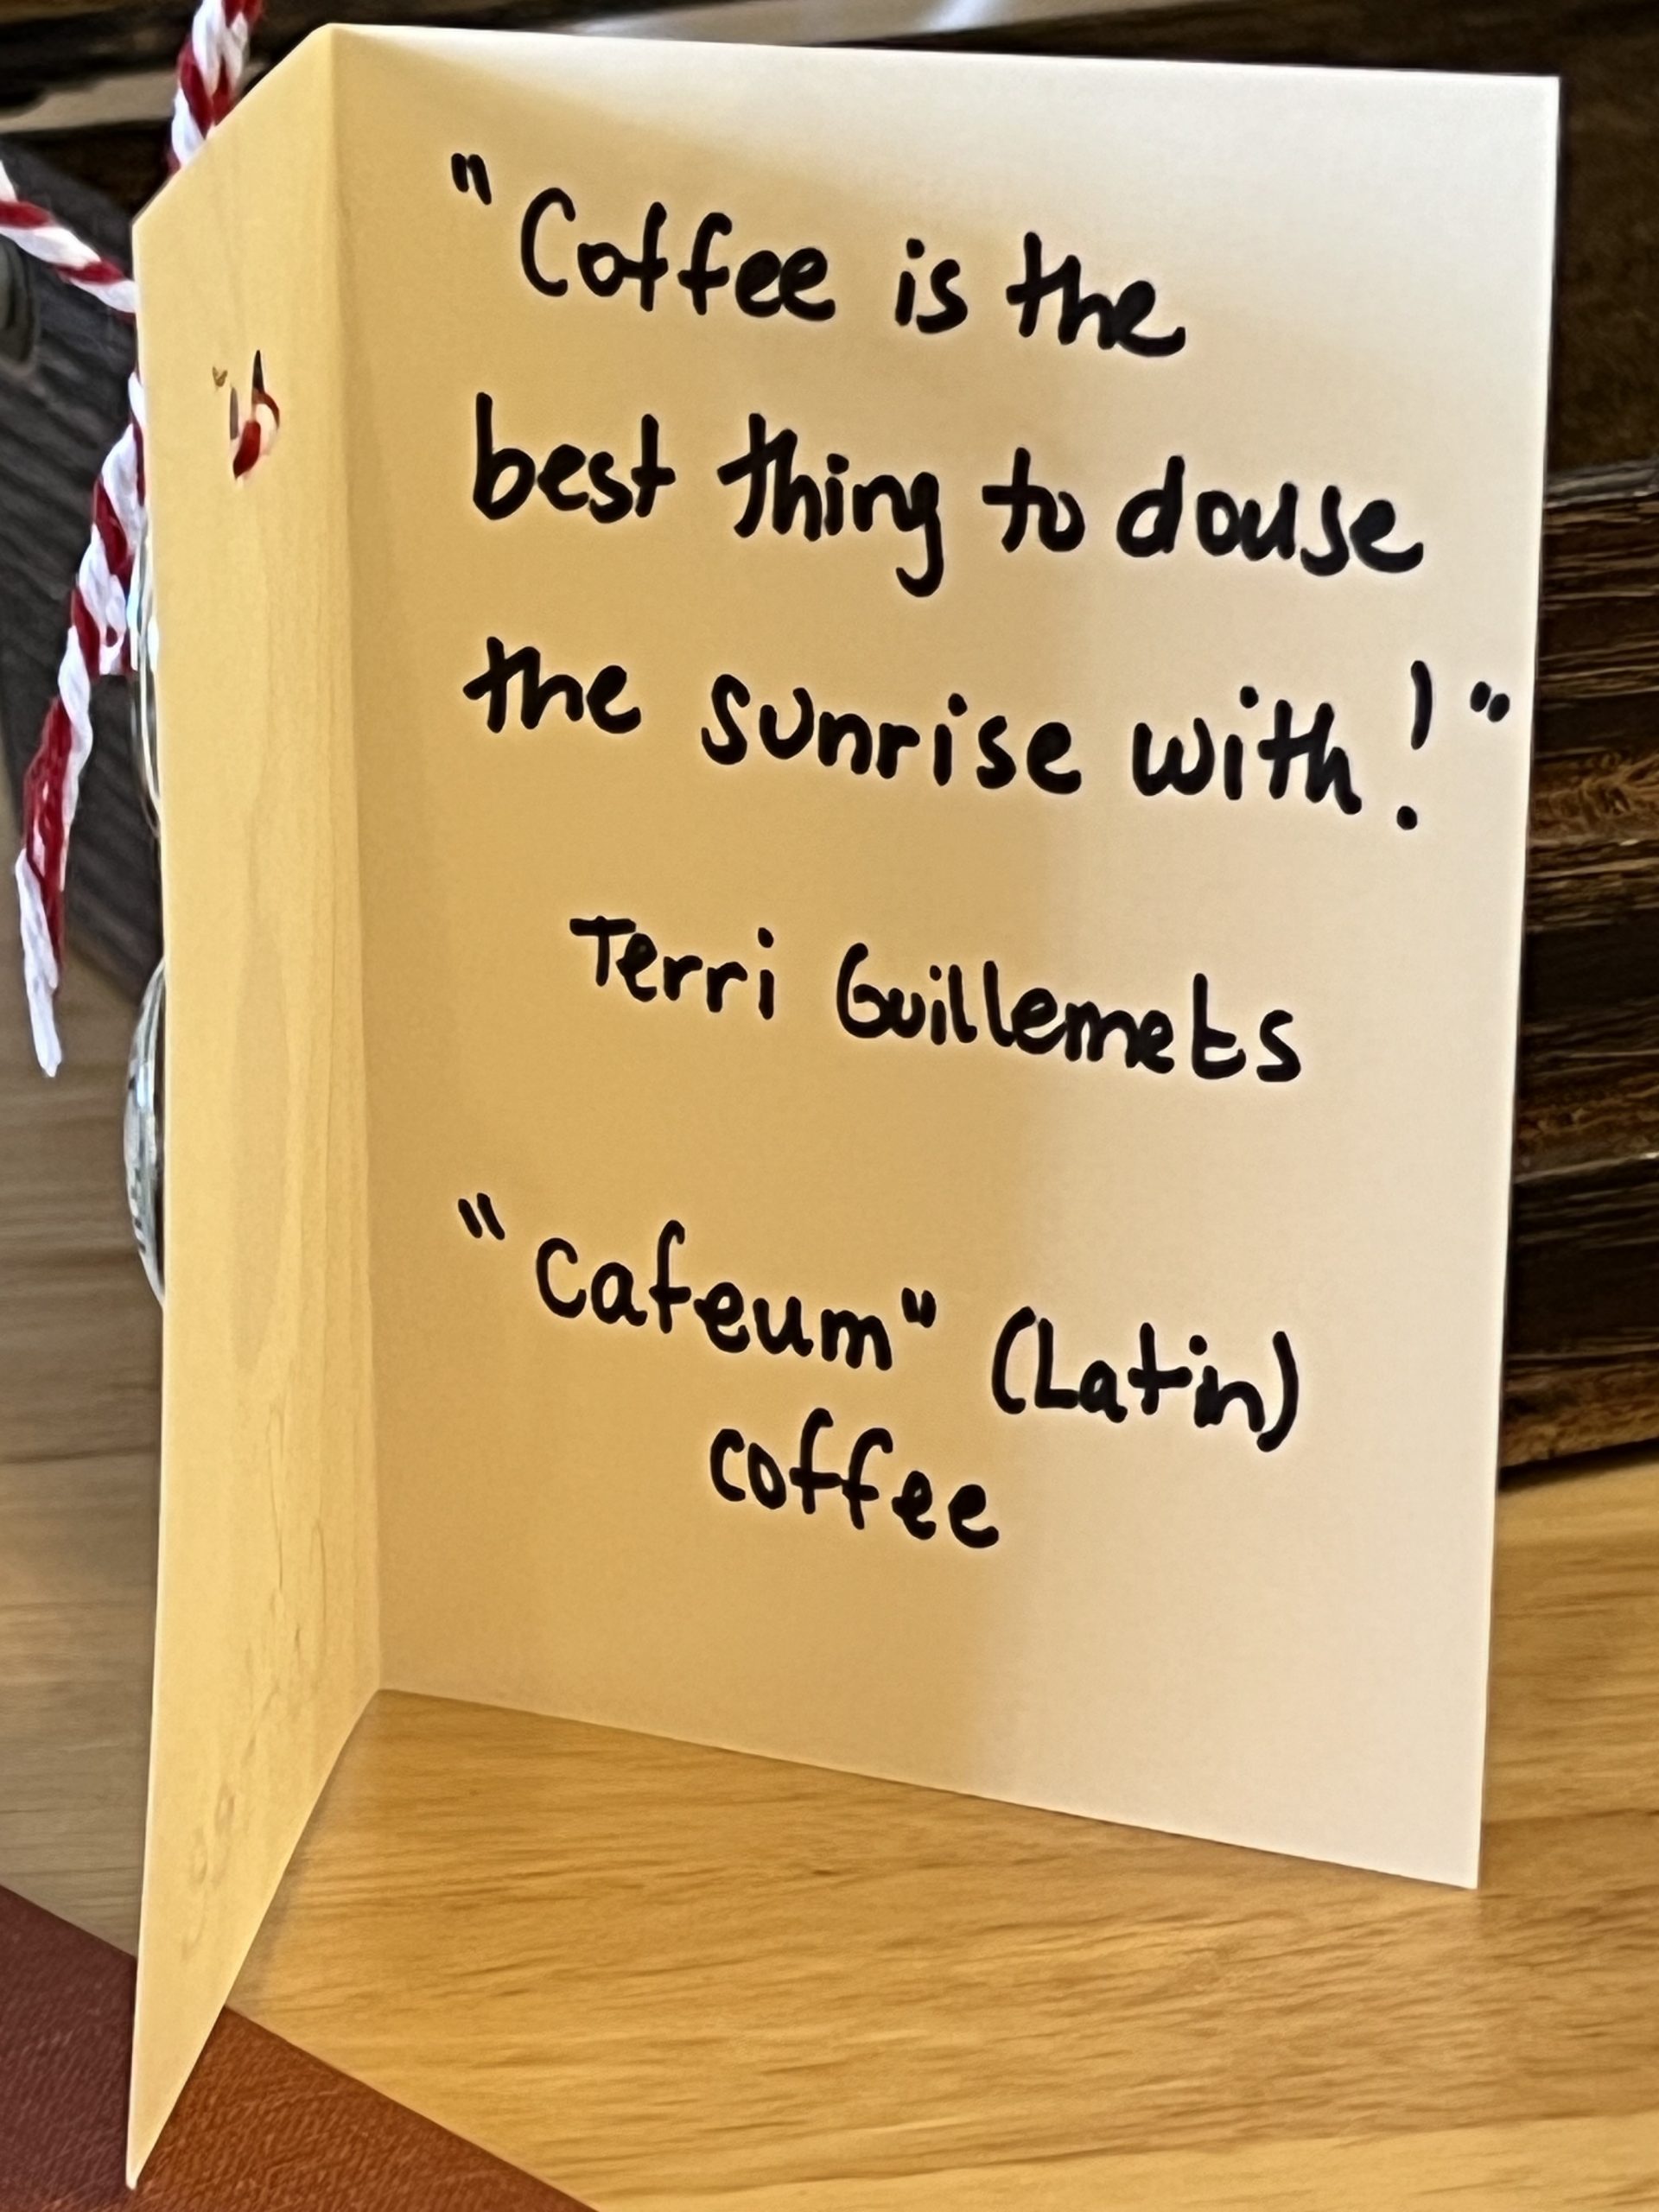 "Coffee is the
best thing to douse
the sunrise with!"
Terri Guillemets
"cafeum" (Latin)
coffee